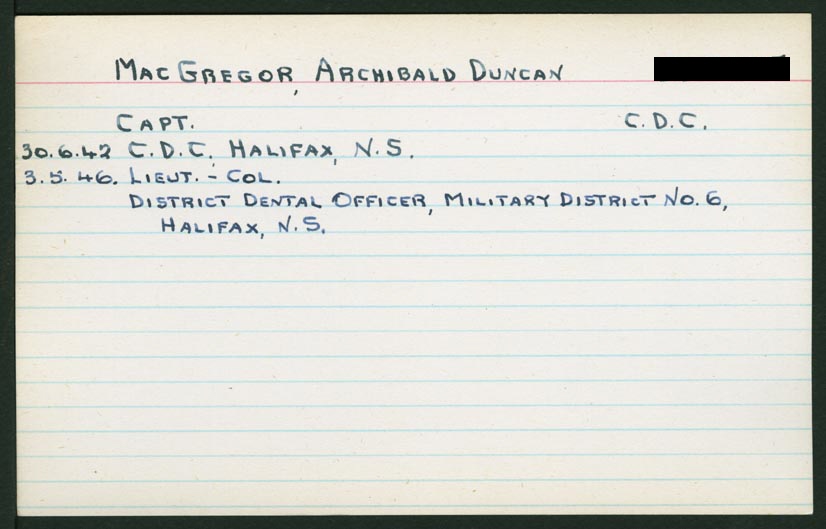 MacGregor, Archibald Duncan
Capt. C.D.C.
30.6.42 C.D.C., Halifax, N.S.
3.5.46. Lieut.-Col.
District Dental Officer, Military District No. 6,
Halifax, N.S.